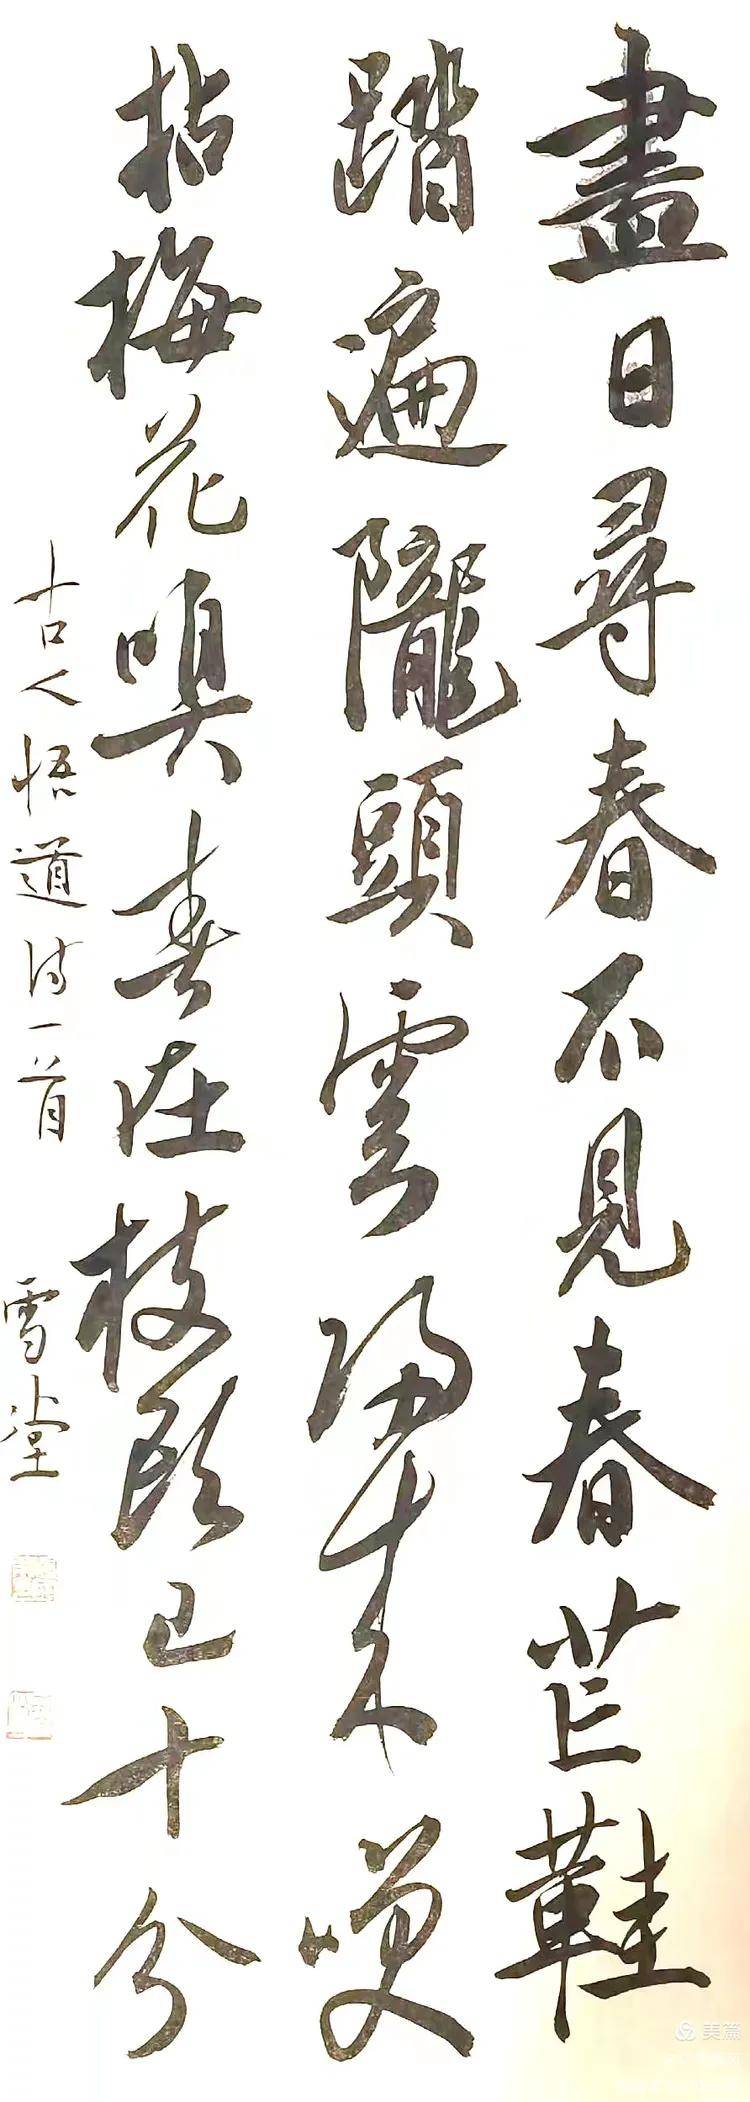 盡日尋春不見春芒鞋
踏遍隴頭雲歸來咲
拈梅花嗅春在枝頭已十分
古人悟道诗一首
雪堂
美篇